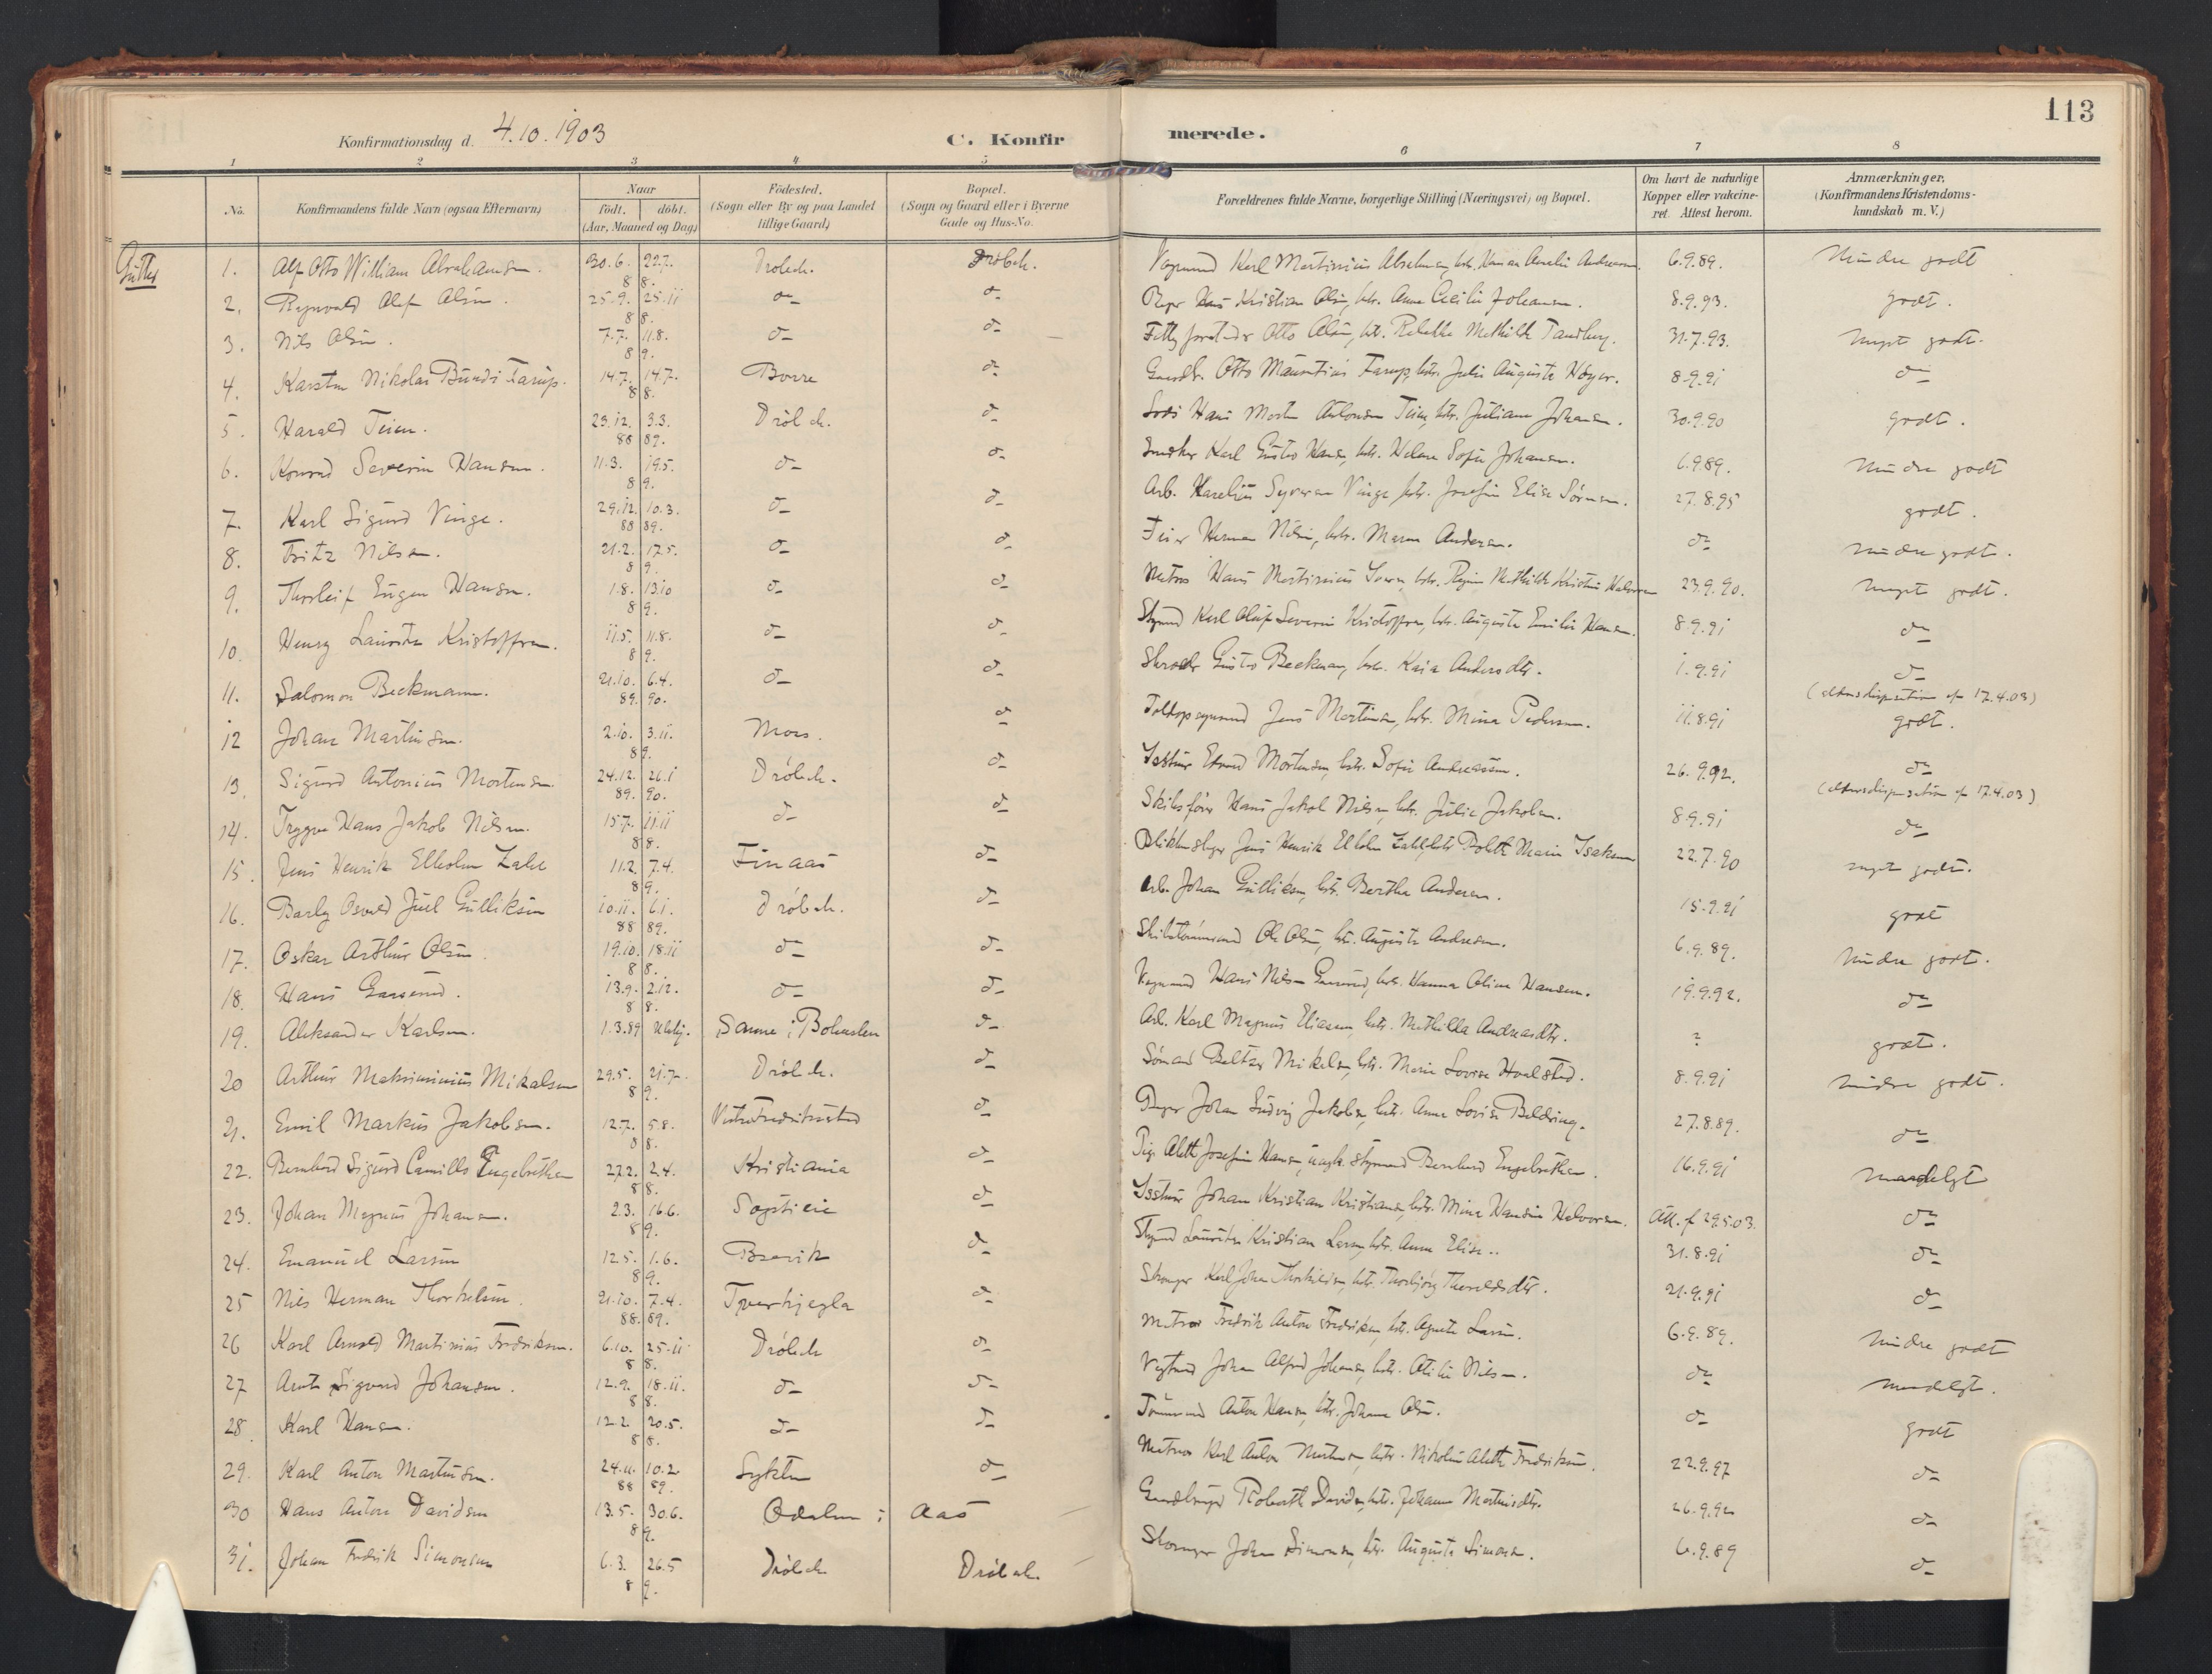 113
Konfirmationsdag d. 4.10.1903 C. Konfirmerede.
1 2 3 4 5 6 7 8
No. Konfirmandens fulde Navn (ogsaa Efternavn) Naar födt. döbt. (Aar, Maaned og Dag) Födested. (Sogn eller By og paa Landet tillige Gaard) Bopæl. (Sogn og Gaard eller i Byerne Gade og Hus-No. Forældrenes fulde Navne, borgerlige Stilling (Næringsvei) og Bopæl. Om havt de naturlige Kopper eller vakcineret. Attest herom. Anmærkninger. (Konfirmandens Kristendomskundskab m. V.)
Gutter
1. Alf Otto William Abrahamsen. 30.6. 22.7. 88. Dröbak. Dröbak. Karl Martinius 6.9.89. Mindre godt
2. Olaf Olsen. 25.9. 25.11 88. do do Kristian Olsen, Anne Cecilie Johansen. 8.9.93. godt.
3. Nils Olsen. 7.7. 11.8. 89. do do Otto Olsen, Mathilde Tandberg. 31.7.93. meget godt.
4. Karsten Nikolai Farup. 14.7. 14.7. 88. Borre do Otto Mauritius Farup, hstr. Julie Augusta Høyer. 8.9.91 do
5. Harald Teien. 29.12. 3.3. 88 89. Dröbak. do Lods Hans Morten Teien, hstr. Juliane Johansen. 30.9.90 godt.
6. Konrad Severin Hansen. 11.3. 19.5. 89. do do Snedker Karl Gustav Hansen, hstr. Sofie Johansen. 6.9.89. Mindre godt
7. Karl Sigurd Vinge. 29.12. 10.3. 88 89. do do Arb. Vinge hstr. Josefine Elise Sörensen. 27.8.95 godt.
8. Fritz Nilsen. 21.2. 17.5. 89. do do Feier Herman Nilsen, hstr. Maren Andersen. do mindre godt.
9. Thorleif Eugen Hansen. 1.8. 13.10 89. do do Matros Hans Martinius hstr. Mathilde Kristine Halvorsen 23.9.90. meget godt.
10. Henry Lauritz Kristoffersen. 11.5. 11.8. 89. do do Styrmd Karl Oluf Severin Kristoffersen, hstr. Augusta Emilie Hansen. 8.9.91 do
11. Salomon Beckmann. 21.10. 6.4. 89. 90. do do Gustav Beckman, hstr. Kaia Andersdtr. 1.9.91 do (aldersdispensation af 17.4.03)
12 Johan Martinsen. 2.10. 3.11. 89. Moss. do Jens Martinsen, hstr. Mina Pedersen. 11.8.91 godt.
13. Sigurd Antonius Mortensen. 24.12. 26.1 89. 90. Dröbak. do Mortensen, hstr. Sofie Andreassen. 26.9.92. do (aldersdispensation af 17.4.03)
14. Trygve Hans Jakob Nilsen. 15.7. 11.11 88. do do Skibsförer Hans Jakob Nilsen, hstr. Julie Jakobsen. 8.9.91 do
15. Jens Henrik Elholm Zahl 11.2. 7.4. 89. Finaas do Jens Henrik Elholm Zahl, hstr. Marie Isaksen 22.7.90 meget godt.
16. Osvald Juel Gulliksen 10.11. 6.1. 88 89. Dröbak. do Arb. Johan Gulliksen, hstr. Berthe Andersen. 15.9.91 godt
17. Oskar Arthur Olsen. 19.10. 18.11 88. do do Skibstömmermd Ole Olsen, hstr. Augusta Andersen. 6.9.89. Mindre godt.
18. Hans. 13.9. 2.12. 88. do do Hans Nilsen hstr. Hanna Oline Hansen. 19.9.92. do
19. Aleksander Karlsen. 1.3.89 Sanne i Bohuslen do Arb. Karl Magnus Eliasen, hstr. Mathilda Andreasdtr. ? godt.
20 Arthur Maksiminius Mikalsen 29.5. 21.7. 89. Dröbak. do Sömand Mikalsen, hstr. Marie Lovise Hvalsted. 8.9.91 mindre godt.
21. Emil Markus Jakobsen. 12.7. 5.8. 88. Vestre Fredrikstad do Johan Ludvig Jakobsen, hstr. Anna Lovise 27.8.89. do
22. Bernhard Sigurd Camillo Engebretsen 27.2. 2.4. 88. Kristiania do Pig. Alette Josefine Hansen, styrmand Bernhard Engebretsen. 16.9.91 maadeligt
23. Johan Magnus Johansen. 2.3. 16.6. 89. do Johan Kristian Kristiansen, hstr. Mina Hansine Halvorsen. Att. af 29.5.03. do
24. Emanuel Larsen 12.5. 1.6. 89. Brevik do Styrmd Lauritz Kristian Larsen, hstr. Anna Elise.. 31.8.91 do
25 Nils Herman Thorkelsen. 21.10. 7.4. 88. 89. do Karl Johan hstr. 21.9.91 do
26 Karl Arnold Martinius Fredriksen. 6.10. 25.11 88. Dröbak do Matros Fredrik Anton Fredriksen, hstr. Agnete Larsen. 6.9.89. Mindre godt
27 Arnt Sigvard Johansen. 12.9. 18.11. 88. do do Johan Alfred Johansen, hstr. Nilsen. do maadeligt.
28. Karl Hansen. 12.2 20.5. 88. do do Tömmermd Anton Hansen, hstr. Johanne Olsen. do godt
29. Karl Anton Martinsen. 24.11. 10.2 88 89. do Matros Karl Anton hstr. Nikoline Alette Fredriksen. 22.9.97 do
30 Hans Anton Davidsen 13.5. 30.6. 89. i Aas Gaardbruger Davidsen, hstr. Johanne Martinsdtr. 26.9.92 do
31. Johan Fredrik Simonsen 6.3. 26.5 89. Dröbak Dröbak. Johan Simonsen, hstr. Augusta Simonsen. 6.9.89 do